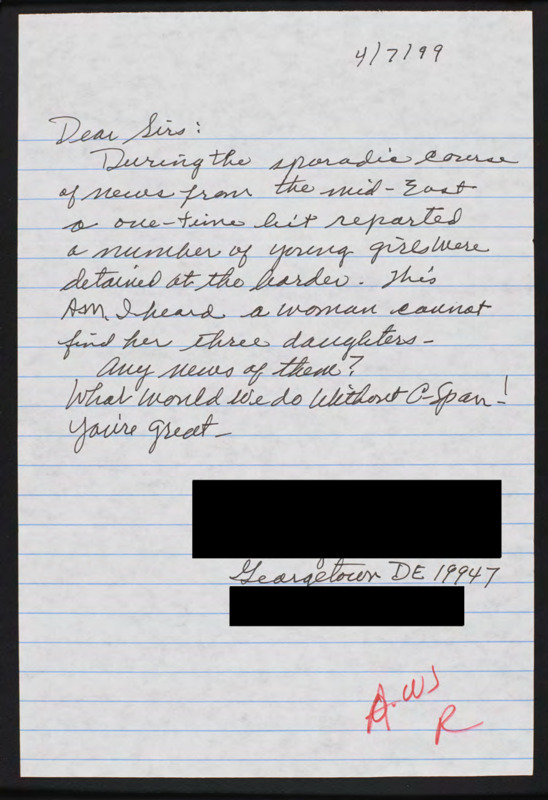 4/7/99
Dear Sirs:
During the sporadic course
of news from the mid-East
a one-time hit reported
a number of young girls were
detained at the border. This
AM, I heard a woman cannot
find her three daughters-
Any news of them?
What would we do without C-Span-!
You're great-
Georgetown DE 19947
R